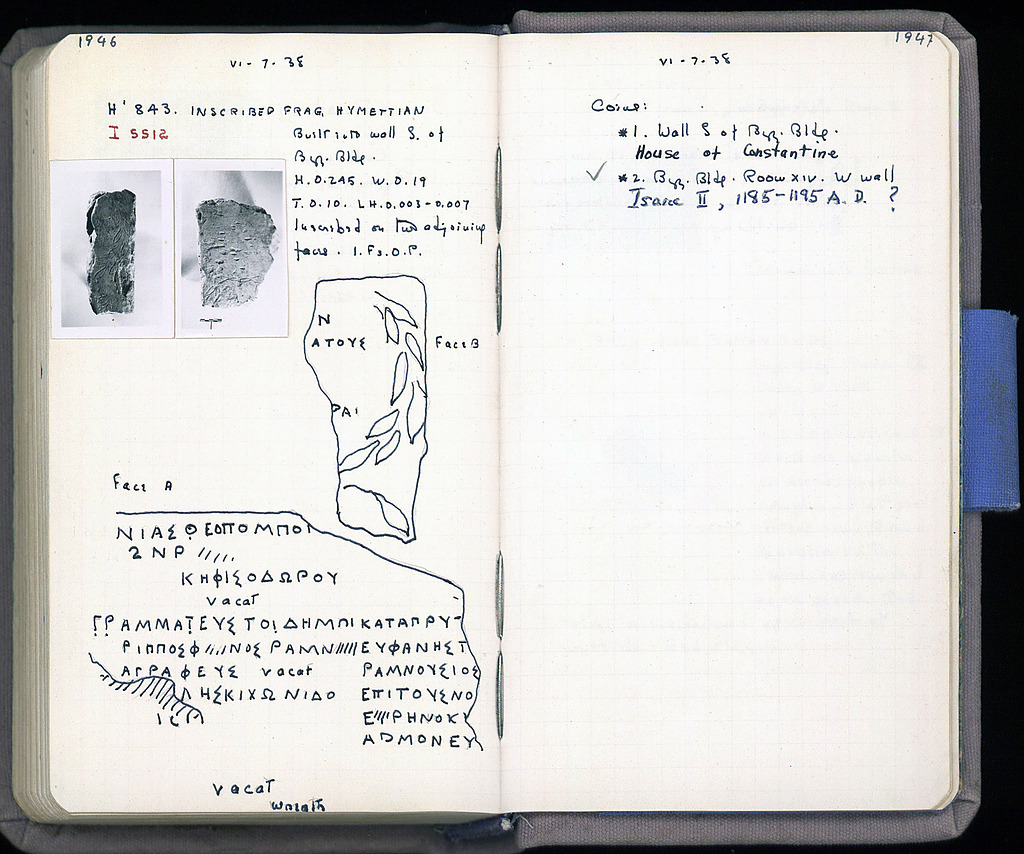 1946
VI-7-38
H' 843. INSCRIBED FRAG. HYMETTIAN
I 5512
Built into wall S. of
Byz. Bldg.
H. 0.245. W. 0.19
T. 0.10. LH. 0.003-0.007
Inscribed on two adjoining
faces.
Ν
ΑΤΟΥΣ
Face B
ΡΑΙ
Face A
ΝΙΑΣ ΘΕΟΠΟΜΠΟΙ
ΝΡ
ΚΗΦΙΣΟΔΩΡΟΥ
vacat
ΓΡΑΜΜΑΤΕΥΣ ΤΟΙ ΔΗΜΠΙ ΚΑΤΑΠΡΥ
ΡΙΠΠΟΣΦ ΝΟΣ ΡΑΜΝ ΕΥΦΑΝΗΣΤ
ΑΓΡΑΦΕΥΣ vacat ΡΑΜΝΟΥΣΙΟΣ
ΛΗΣΚΙΧΩΝΙΔΟ ΕΠΙΤΟΥΣΝΟ
Ε ΡΗΝΟΚΥ
ΑΡΜΟΝΕΥ
vacat
wreath
1947
VI-7-38
Coins:
*1. Wall S of Byz. Bldg.
House of Constantine
✓ *2. Byz. Bldg. Room XIV. W wall
Isaac II, 1185-1195 A.D. ?